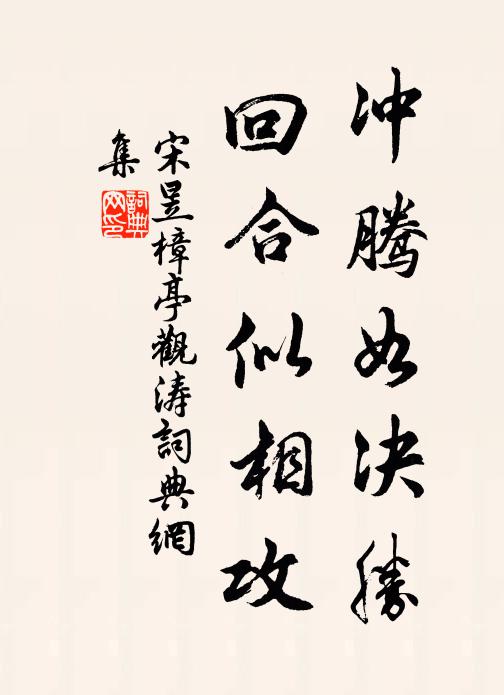 冲腾如决勝
回合似相攻
宋昱樟亭觀涛詞典網
集
詞典網印